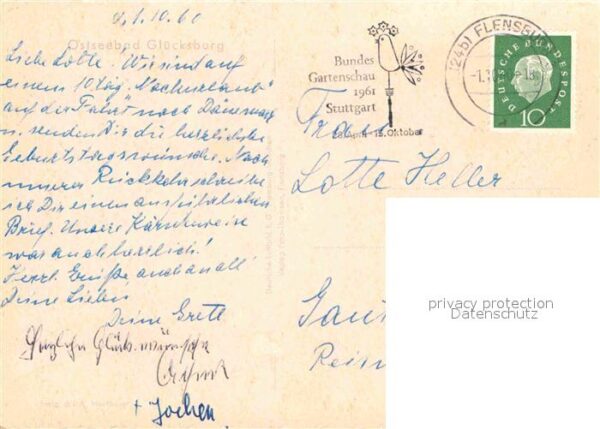 d. 1.10.60
Ostseebad Glücksburg
Liebe Lotte. Wir sind auf
einem 10 täg. "Nachurlaub"
auf der Fahrt nach Dänemark
u. senden Dir die herzlichsten
Geburtstagswünsche. Nach
unserer Rückkehr schreibe
ich Dir einen ausführlichen
Brief. Unsere Kärntenreise
war auch herrlich!
Herzl. Grüße auch an all
Deine Lieben
Deine Grete
Herzliche Glückwünsche
+ Jochen
Bundes
Gartenschau
1961
Stuttgart
April - 15. Oktober
(24b) FLENSBURG
DEUTSCHE BUNDESPOST
10
Frau
Lotte Heller
privacy protection
Datenschutz